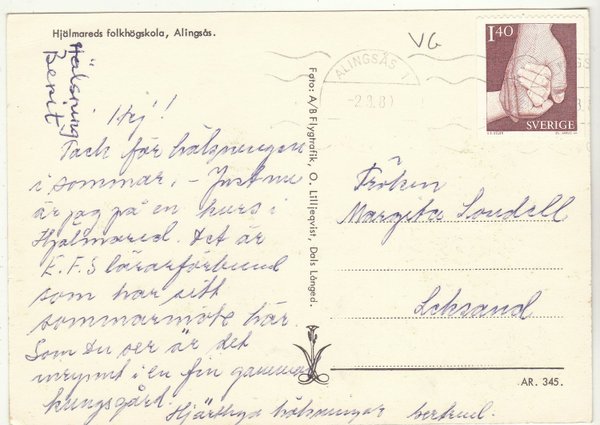 Hjälmareds folkhögskola, Alingsås.
Hälsning
Berit
Hej!
Tack för hälsningen
i sommar. – Just nu
är jag på en kurs i
Hjälmared. Det är
E.F.S lärarförbund
som har sitt
sommarmöte här.
Som Du ser är det
inrymt i en fin gammal
kungsgård.
Hjärtliga hälsningar
Foto: A/B Flygtrafik, O. Lilljeqvist, Dals Långed.
VG
ALINGSÅS 1
140
SVERIGE
Fröken
Margita Sondell
Leksand
AR. 345.